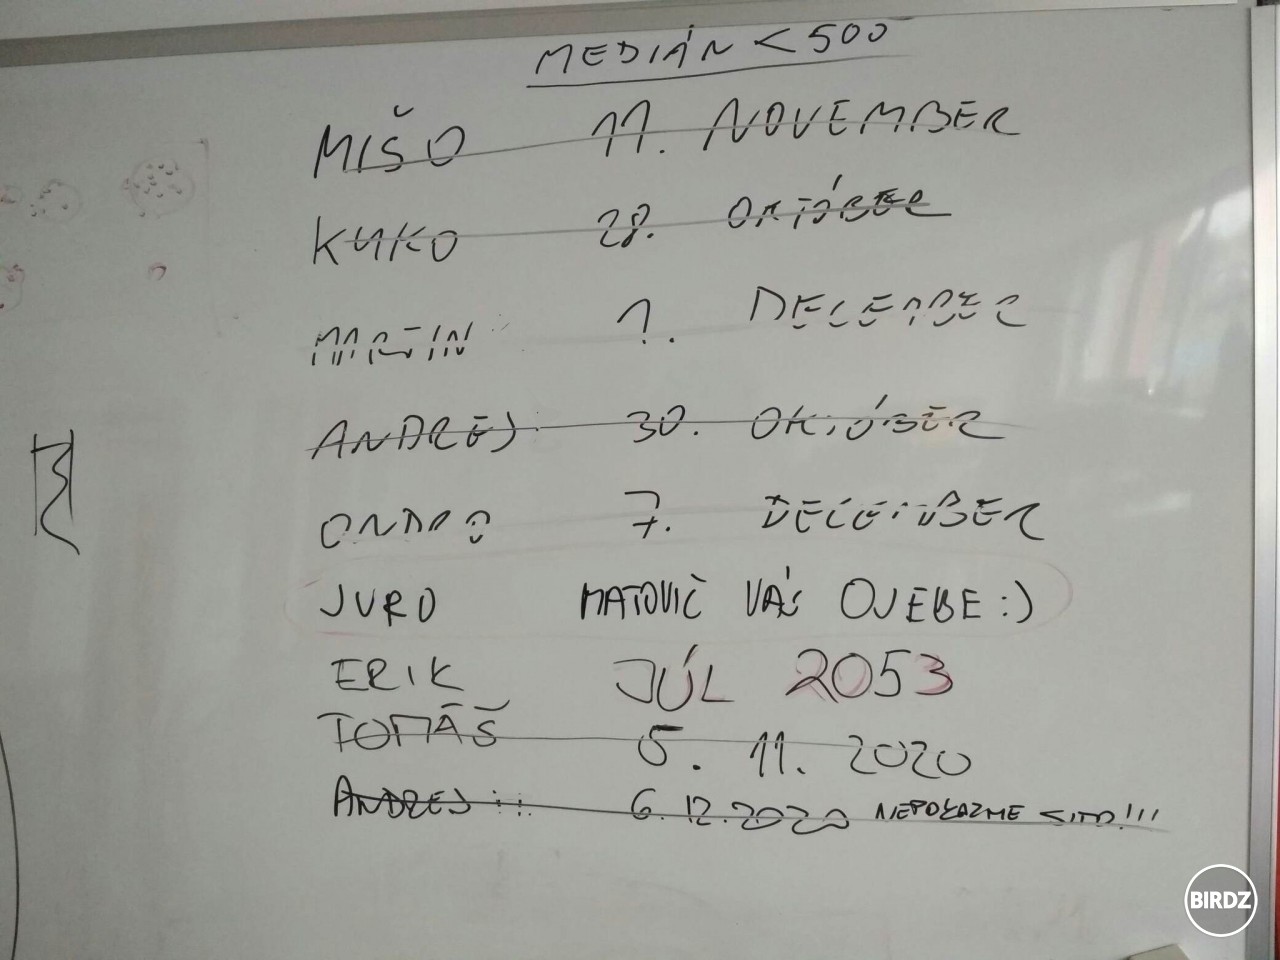 MEDIÁN < 500
MIŠO 11. NOVEMBER
KUKO 28. OKTÓBER
MARTIN 1. DECEMBER
ANDREJ 30. OKTÓBER
ONDRO 7. DECEMBER
JURO MATOVIČ VÁS OJEBE :)
ERIK JÚL 2053
TOMÁŠ 5. 11. 2020
ANDREJ 6.12.2020
BIRDZ